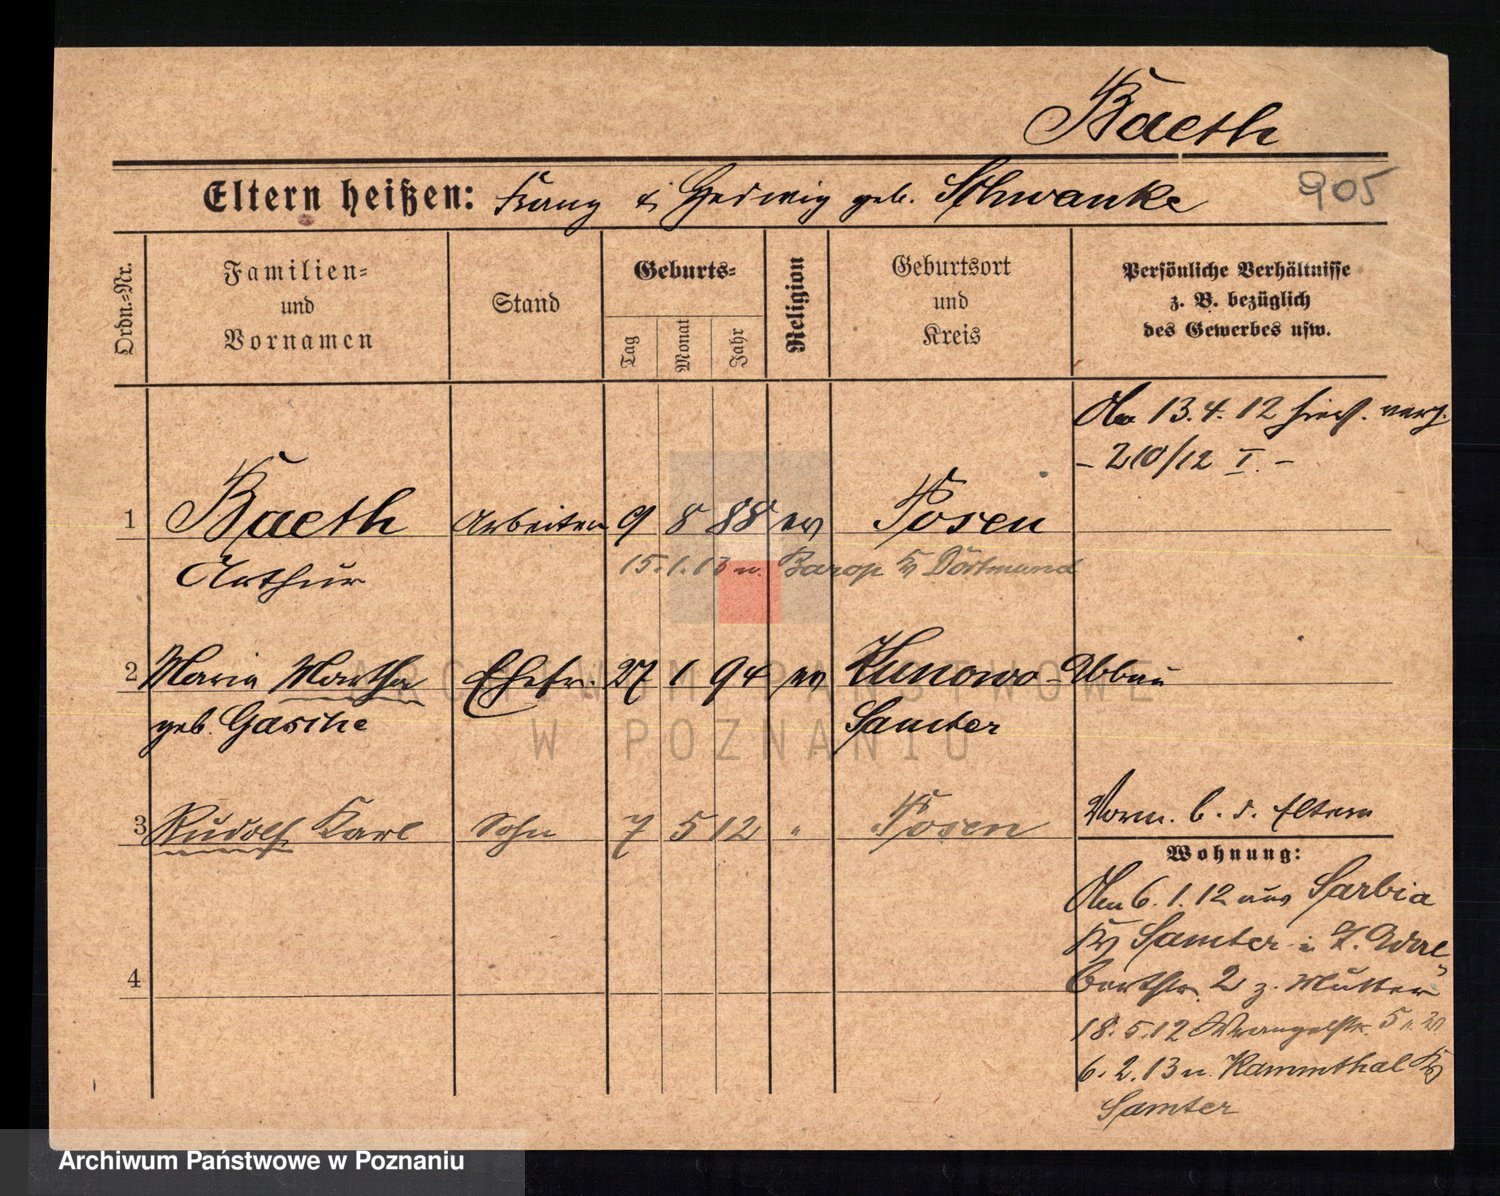 Baeth
Eltern heißen: Franz & Hedwig geb. Schwanke
905
Ordn.=Nr.
Familien=
und
Vornamen
Stand
Geburts=
Tag
Monat
Jahr
Religion
Geburtsort
und
Kreis
Persönliche Verhältnisse
z. B. bezüglich
des Gewerbes usw.
Am 13.4.12 hies. verh.
- 210/12 I. -
1 Baeth Arbeiter 9 8 88 ev Posen
Arthur 15.1.13 n. Barop Kr Dortmund
2 Maria Martha Ehefr. 27 1 94 ev Kunowo-Abbau
geb. Gasche Samter
3 Rudolf Karl Sohn 7 5 12 " Posen
Vorm. b. d. Eltern
Wohnung:
Am 6.1.12 aus Sarbia
Kr Samter
4
bertstr. 2 z. Mutter
18.5.12 Wrangelstr. 5
6.2.13 n. Kammthal Kr
Samter
ARCHIWUM PAŃSTWOWE
W POZNANIU
Archiwum Państwowe w Poznaniu